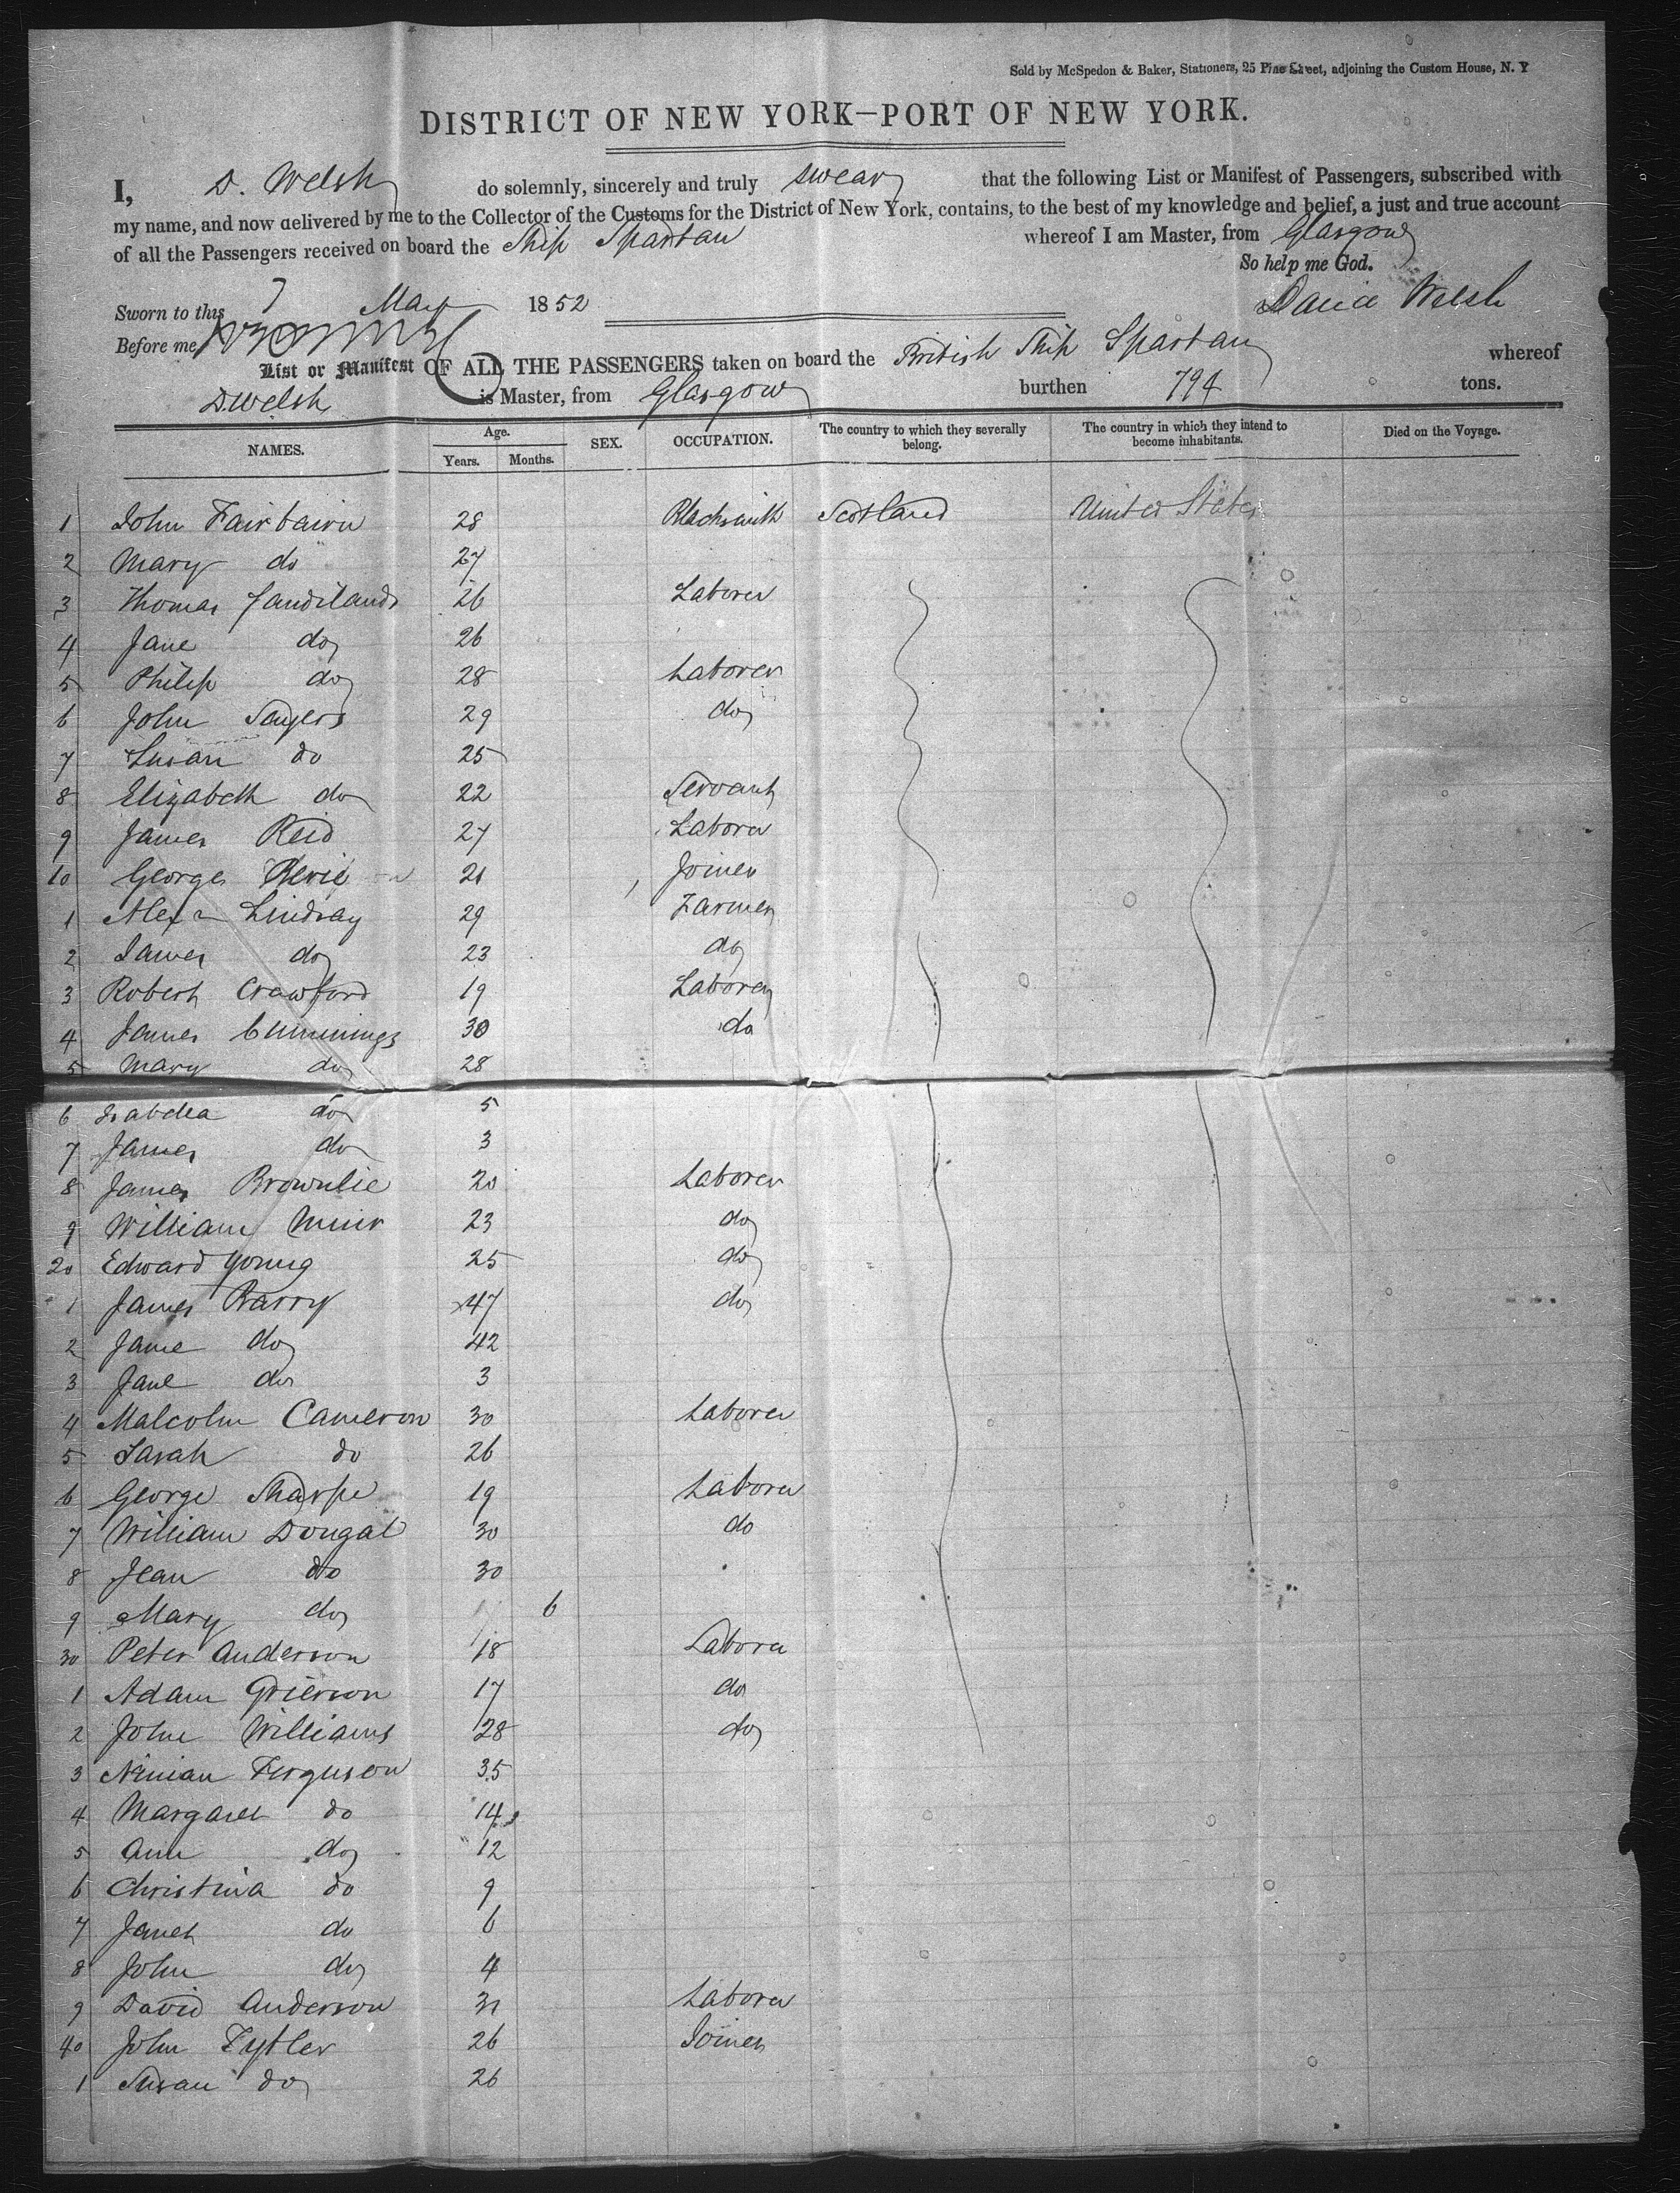 Sold by McSpedon & Baker, Stationers, 25 Pine Street, adjoining the Custom House, N. Y
DISTRICT OF NEW YORK—PORT OF NEW YORK.
I, D. Welsh do solemnly, sincerely and truly swear that the following List or Manifest of Passengers, subscribed with
my name, and now delivered by me to the Collector of the Customs for the District of New York, contains, to the best of my knowledge and belief, a just and true account
of all the Passengers received on board the Ship Spartan whereof I am Master, from Glasgow
So help me God.
Sworn to this 7 May 1852 David Welsh
Before me
List or Manifest OF ALL THE PASSENGERS taken on board the British Ship Spartan whereof
D. Welsh is Master, from Glasgow burthen 794 tons.
NAMES. Age. Years. Months. SEX. OCCUPATION. The country to which they severally belong. The country in which they intend to become inhabitants. Died on the Voyage.
1 John Fairbairn 28 Blacksmith Scotland United States
2 Mary do 27
3 Thomas Sandilands 26 Laborer
4 Jane do 26
5 Philip do 28 Laborer
6 John Sayers 29 do
7 Susan do 25
8 Elizabeth do 22 Servant
9 James Reid 27 Laborer
10 George 21 Joiner
1 Alexr Lindsay 29 Farmer
2 James do 23 do
3 Robert Crawford 19 Laborer
4 James Cummings 30 do
5 Mary do 28
6 Isabella do 5
7 James do 3
8 James Brownlie 20 Laborer
9 William Muir 23 do
20 Edward Young 25 do
1 James Barry 47 do
2 Jane do 42
3 Jane do 3
4 Malcolm Cameron 30 Laborer
5 Sarah do 26
6 George Sharpe 19 Laborer
7 William Dougal 30 do
8 Jean do 30
9 Mary do 6
30 Peter Anderson 18 Laborer
1 Adam Grierson 17 do
2 John Williams 28 do
3 Ninian Ferguson 35
4 Margaret do 14
5 Ann do 12
6 Christina do 9
7 Janet do 6
8 John do 4
9 David Anderson 31 Laborer
40 John Fytler 26 Joiner
1 Susan do 26